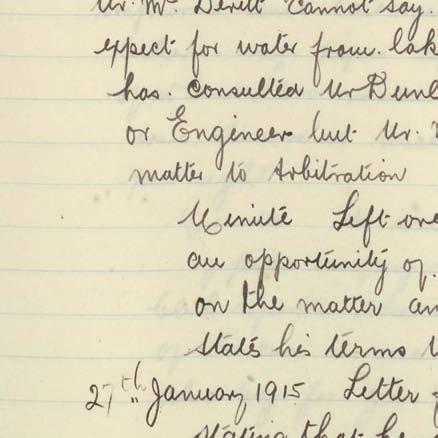 Mr. Mc. Devitt cannot say.
expect for water from. lak
has. consulted Mr Dunl
or Engineer but Mr.
matter to Arbitration
Minute Left ove
an opportunity of.
on the matter an
states his terms
27th January 1915 Letter
stating that he